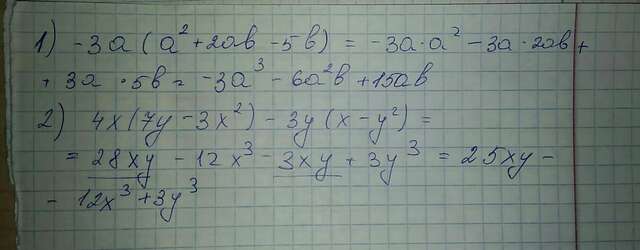 1) -3a (a² + 2ab - 5b) = -3a·a² - 3a·2ab +
+ 3a · 5b = -3a³ - 6a²b + 15ab
2) 4x(7y - 3x²) - 3y(x - y²) =
= 28xy - 12x³ - 3xy + 3y³ = 25xy -
- 12x³ + 3y³